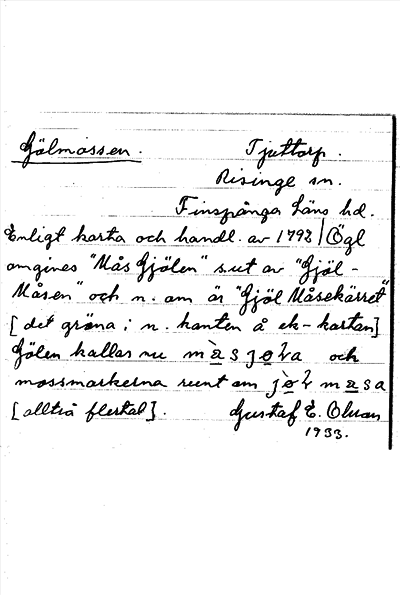 Gölmossen. Tjuttorp.
Risinge sn.
Finspånga läns hd.
Enligt karta och handl. av 1792 | Ögl
omgives "Mås Gjölen" s.ut av "Gjöl-
Måsen" och n. om är "Gjöl Måsekärret"
[det gröna i n. kanten å ek-kartan]
Gölen kallas nu och
mossmarkerna runt om
[alltså flertal]. Gustaf E. Olson
1933.